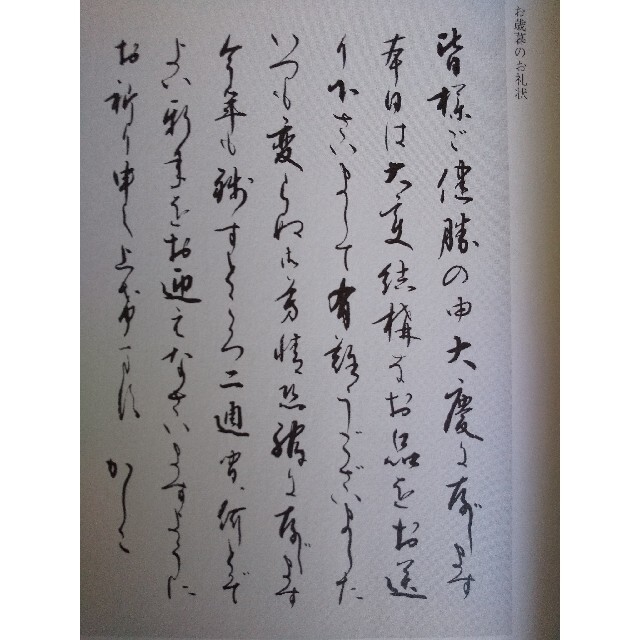 お歳暮のお礼状
皆様ご健勝の由大慶に存じます
本日は大変結構なお品をお送
り下さいまして有難うございました
いつも変らぬ御芳情恐縮に存じます
今年も残すところ二週間、何とぞ
よい新年をお迎えなさいますように
お祈り申し上げ かしこ